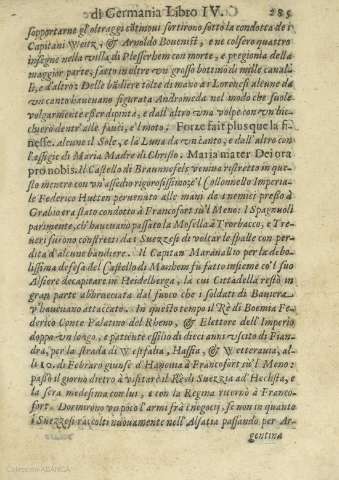 di Germania Libro IV. 285
sopportarne gl'oltraggi cōtinoui sortirono sotto la condotta de i
Capitani Wentz, & Arnoldo Bouenist, e ne colsero quattro
insegne nella villa di Plesserhem con morte, e pregionia della
maggior parte, fatto in oltre vn grosso bottino di mille canal-
li, e d'altro: Delle bādiere tolte di mano a i Lorenesi alcune da
vn canto haueuano figurata Andromeda nel modo che suole
volgarmente esser dipinta, e dall'altro vna volpe con vn bic-
chiero dentr'alle fauci, e'l moto, Forze fait plus que la fi-
nesse. alcune il Sole, e la Luna da vn canto, e dall'altro con
l'effigie di Maria Madre di Christo. Maria mater Dei ora
pro nobis. il Castello di Braunnfels veniua ristretto in que-
sto mentre con vn'assedio rigorosissimo: e'l Collonnello Imperia-
le Federico Hutten peruenuto alle mani de i nemici presso à
Grabio era stato condotto à Francofort sù'l Meno: I Spagnuoli
parimente, ch'haueuano passato la Mosella à Trorbacco, e Tre-
ueri furono constretti da i Suezzesi di voltar le spalle con per-
dita d'alcune bandiere. Il Capitan Maranallo per la debo-
lissima defesa del Castello di Manhem fù fatto insieme co'l suo
Alfiere decapitare in Heidelberga, la cui Cittadella restò in
gran parte abbracciata dal fuoco che i soldati di Bauiera
v'haueuano attaccato. In questo tempo il Rè di Boemia Fe-
derico Conte Palatino del Rheno, & Elettore dell'Imperio
doppo vn longo, e patiente essilio di dieci anni vscito di Fian-
dra, per la strada di Westfalia, Hassia, & Wetterauia, al-
li 10. di Febraro giunse d'Hanouia à Francofort sù'l Meno:
passò il giorno dietro à visitare il Rè di Suezzia ad Hechsta, e
la sera medesima con lui, e con la Regina ritornò à Franco-
fort. Dormirono vn poco l'armi frà i negocij, se non in quanto
i Suezzesi raccolti nuouamente nell'Alsatia passando per Ar-
gentina
Colección ABANCA